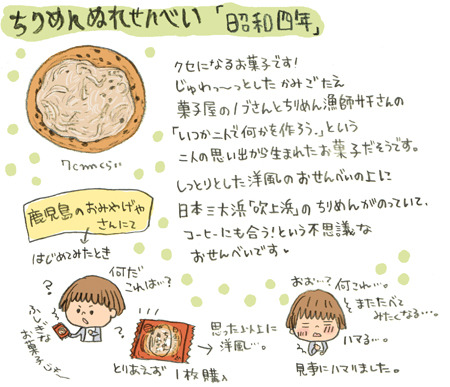 ちりめんぬれせんべい「昭和四年」
クセになるお菓子です!
じゅわ〜〜っとした かみごたえ
菓子屋のノブさんとちりめん漁師サチさんの
「いつか二人で何かを作ろう。」という
二人の思い出から生まれたお菓子だそうです。
しっとりとした洋風しのおせんべいの上に
日本三大浜「吹上浜」の ちりめんがのっていて、
コーヒーにも合う!という不思議な
おせんべいです
7cmくらい
鹿児島のおみやげや
さんにて
はじめてみたとき
何だ
これは…?
ふしぎな
お菓子じゃ
とりあえず 1枚購入
思った以上に
洋風…。
おぉ…?
何これ…。
またたべて
みたくなる…。
ハマる…。
見事にハマりました。